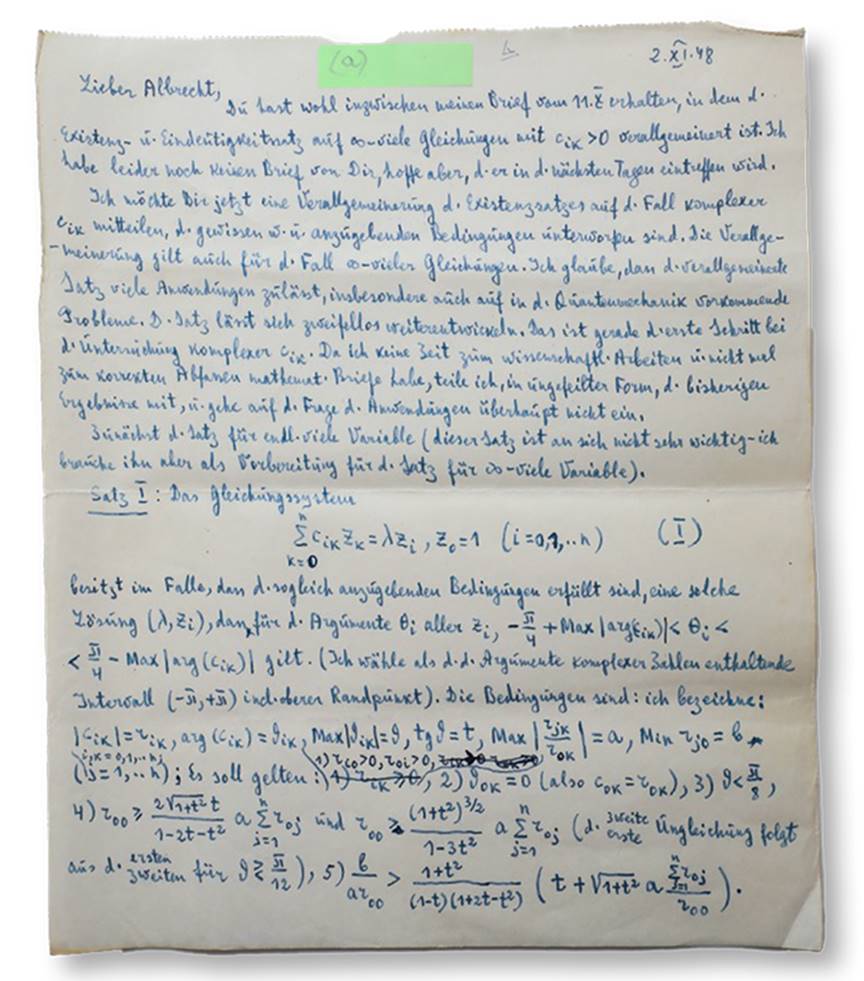 (a)
2.XI.48
Lieber Albrecht,
Dü hast wohl inzwischen meinen Brief vom 11.X erhalten, in dem d.
Existenz- ü. Eindeütigkeitssatz aüf ∞-viele Gleichüngen mit c_ik>0 verallgemeinert ist. Ich
habe leider noch keinen Brief von Dir, hoffe aber, d. er in d. nächsten Tagen eintreffen wird.
Ich möchte Dir jetzt eine Verallgemeinerüng d. Existenzsatzes aüf d. Fall komplexer
c_ik mitteilen, d. gewissen w. ü. anzügebenden Bedingüngen ünterworfen sind. Die Verallge-
-meinerüng gilt aüch für d. Fall ∞-vieler Gleichüngen. Ich glaübe, dass d. verallgemeinerte
Satz viele Anwendüngen zülässt, insbesondere aüch aüf in d. Qüantenmechanik vorkommende
Probleme. D. Satz lässt sich zweifellos weiterentwickeln. Das ist gerade d. erste Schritt bei
d. Üntersüchüng komplexer c_ik. Da ich keine Zeit züm wissenschaftl. Arbeiten ü. nicht mal
züm korrekten Abfassen mathemat. Briefe habe, teile ich, in üngefeilter Form, d. bisherigen
Ergebnisse mit, ü. gehe aüf d. Frage d. Anwendüngen überhaüpt nicht ein.
Zünächst d. Satz für endl. viele Variable (dieser Satz ist an sich nicht sehr wichtig-ich
braüche ihn aber als Vorbereitüng für d. Satz für ∞-viele Variable).
Satz I: Das Gleichüngssystem
n∑k=0 c_ik z_k = λz_i, z_0=1 (i=0,1,..n) (I)
besitzt im Falle, dass d. sogleich anzügebenden Bedingüngen erfüllt sind, eine solche
Lösüng (λ,z_i), dass für d. Argümente θ_i aller z_i, -π/4 + Max|arg(c_ik)| < θ_i <
< π/4 - Max|arg(c_ik)| gilt. (Ich wähle als d. d. Argümente komplexer Zahlen enthaltende
Intervall (-π,+π) incl. oberer Randpünkt). Die Bedingüngen sind: ich bezeichne:
|c_ik|=r_ik, arg(c_ik)=ϑ_ik, Max|ϑ_ik|=ϑ, tgϑ=t, Max|r_jk/r_0k|=a, Min r_j0=b
i,k=0,1,..n; 1) r_i0>0, r_0i>0,
(j=1,..n); Es soll gelten: 2) ϑ_0k=0 (also c_0k=r_0k), 3) ϑ<π/8,
4) r_00 ≥ 2√(1+t²) t/(1-2t-t²) a n∑j=1 r_0j ünd r_00 ≥ (1+t²)^3/2/(1-3t²) a n∑j=1 r_0j (d. zweite/erste Üngleichüng folgt
aüs d. ersten/zweiten für ϑ≷π/12), 5) b/(ar_00) > (1+t²)/((1-t)(1+2t-t²)) (t+√(1+t²) a n∑j=1 r_0j/r_00).